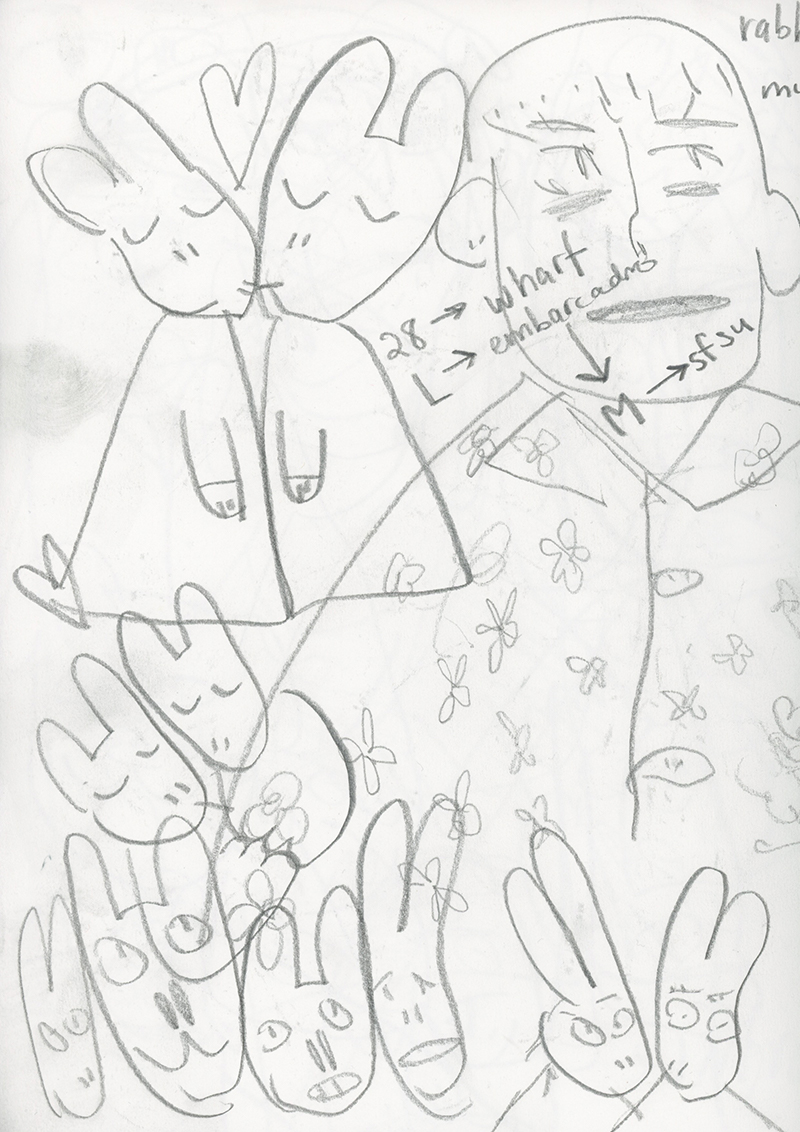 rabb
mu
28 → wharf
L → embarcadero
↓
M → sfsu